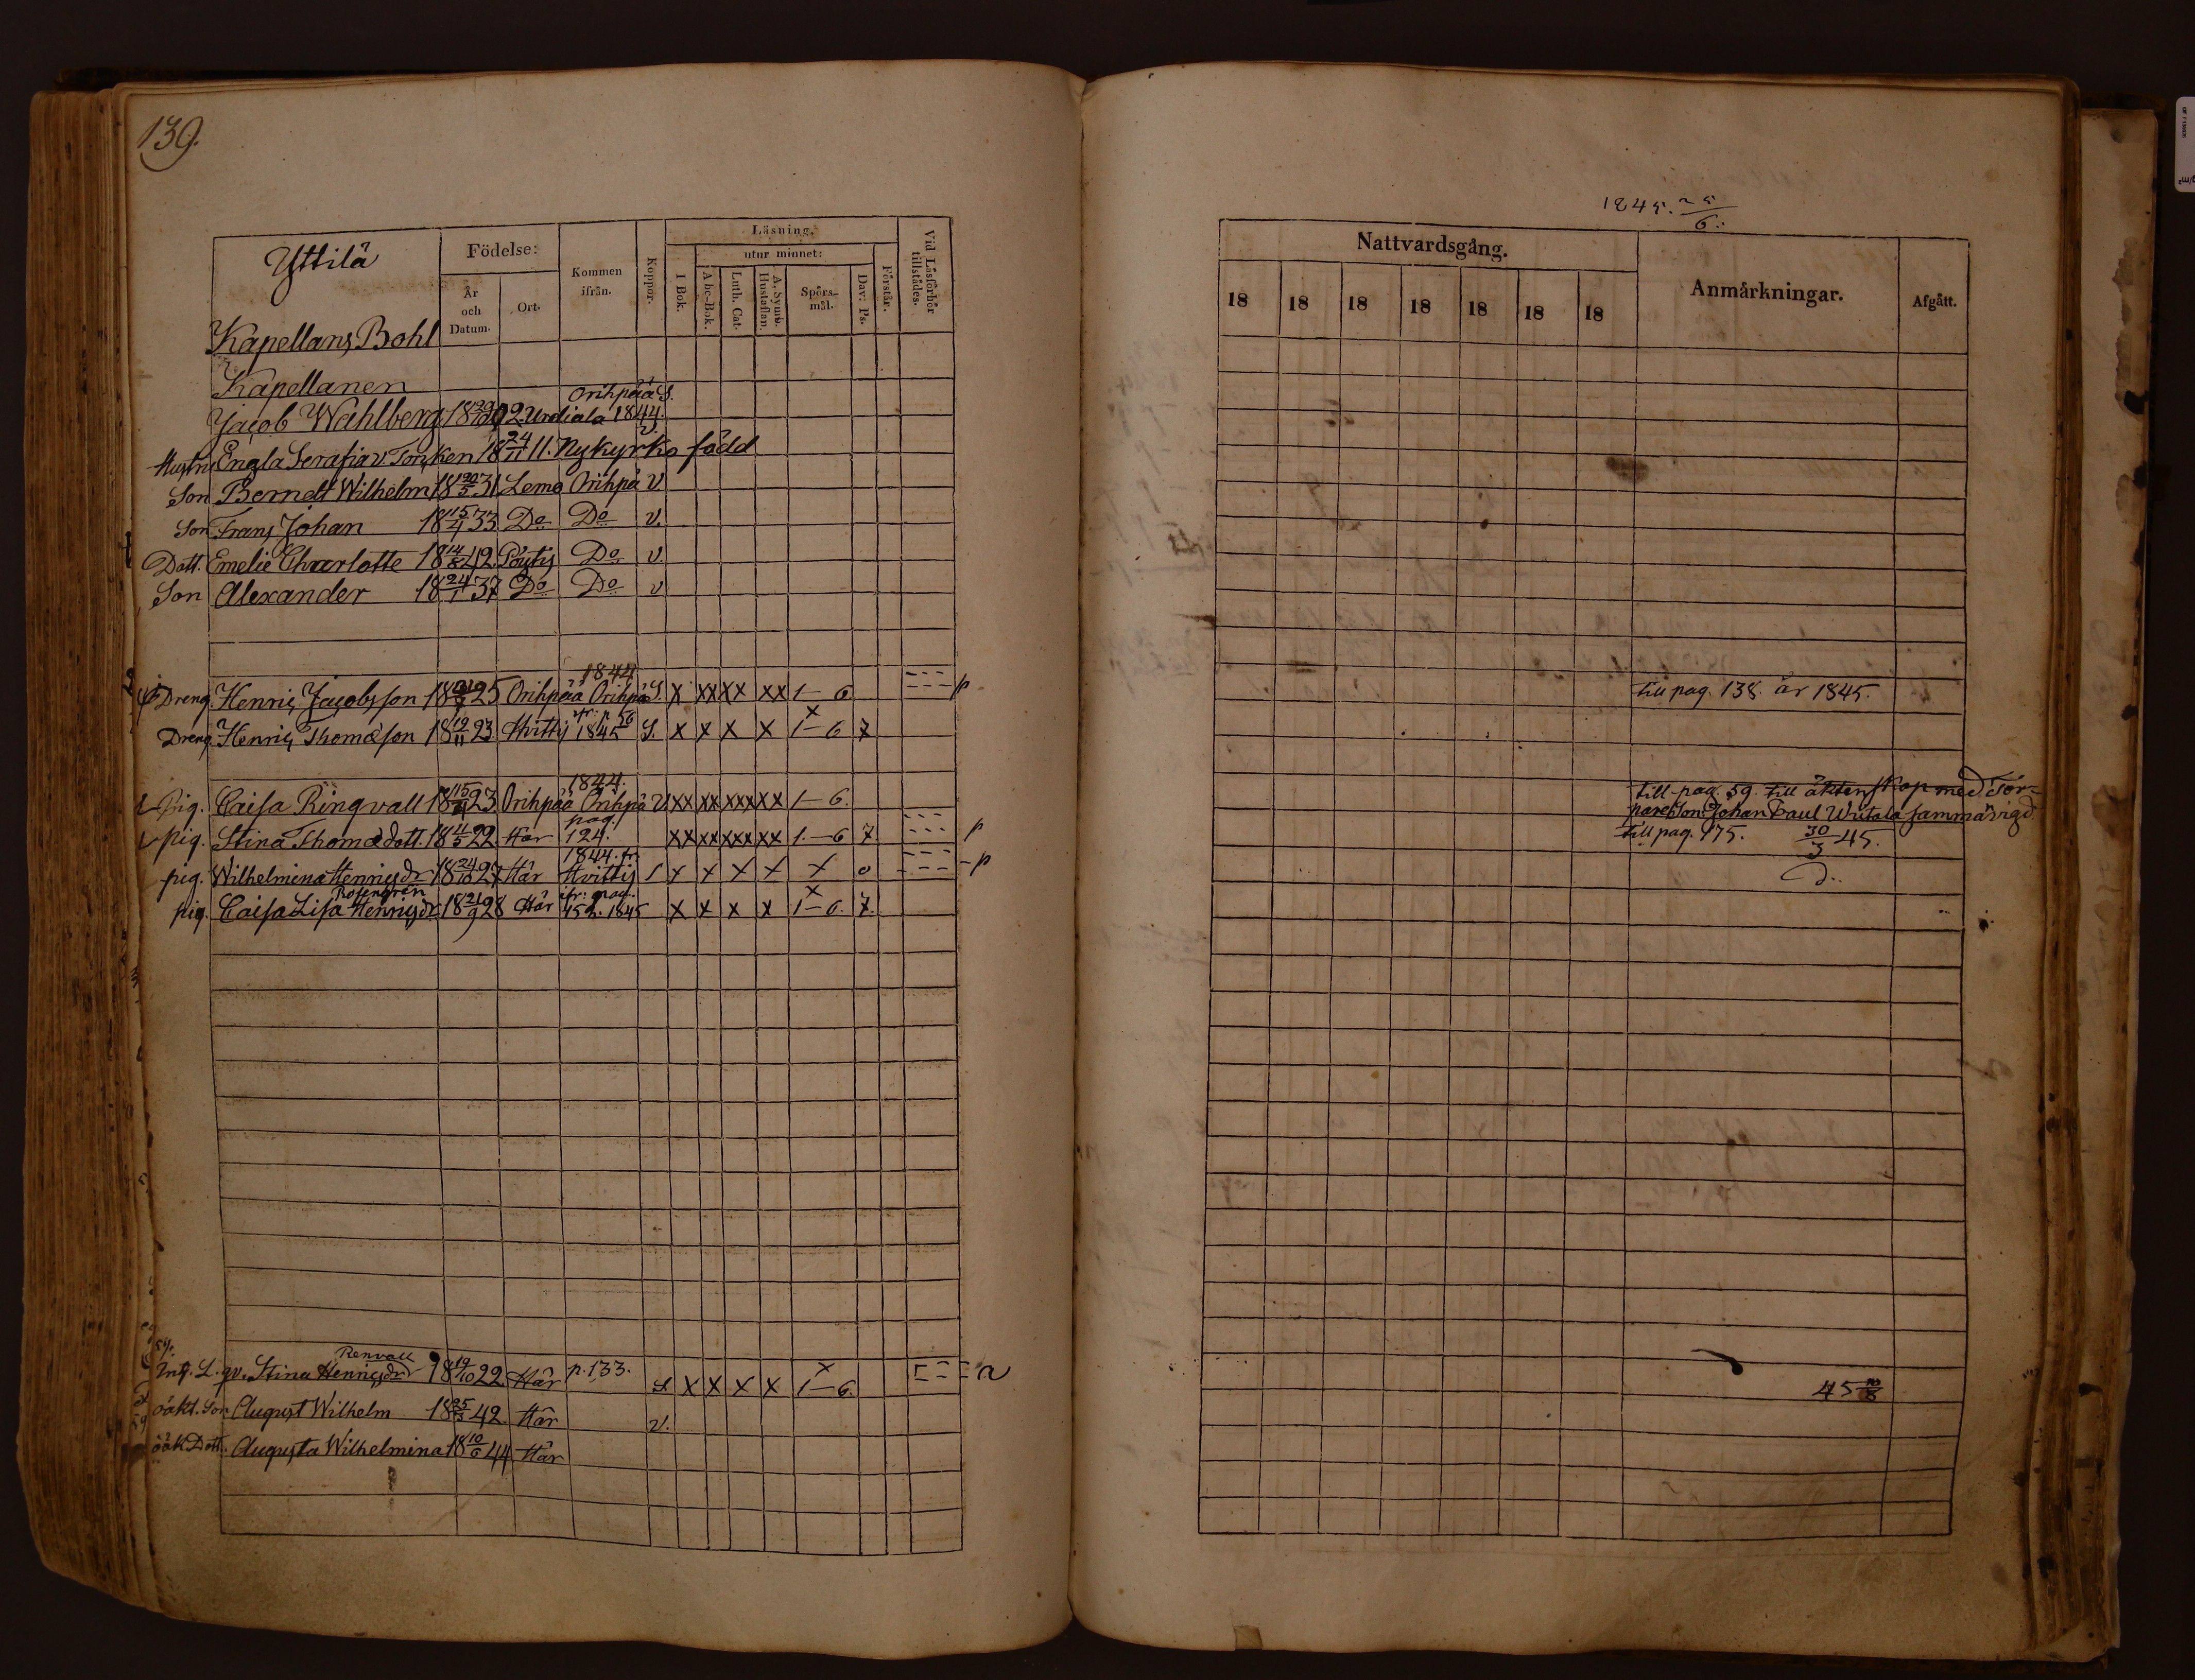 139.
Yttilä
Födelse:
Kommen ifrån.
Koppor.
Läsning.
Vid Läsförhör tillstädes.
utur minnet:
År och Datum.
Ort.
I Bok.
Abc-Bok.
Luth. Cat.
A. Symb. Hustaflan.
Spörs-mål.
Dav: Ps.
Förstår.
Kapellans Bohl
Kapellanen
Jacob Wahlberg 18 02 Urdiala Orihpää 1844. S.
Hustru Engla Serafia v Torcken 18 24/11 11. Nykyrko född v.
Son Berndt Wilhelm 18 20/5 31 Lemo Orihpä v
Son Frans Johan 18 15/4 33 Do Do v.
Dott. Emelie Charlotte 18 14/8 42 Pöytis Do v.
Son Alexander 18 24/1 37 Do Do v
Dreng. Henric Jacobsson 18 25 Orihpää 1844 Orihpä S. x xx xx xx 1–6 p
Dreng. Henric Thomæson 18 19/11 23 Hvittis p. 56 1845 S. x x x x 1–6 7
Pig. Caisa Ringvall 18 15/11 23 Orihpää 1844. Orihpä v xx xx xxx xx 1–6.
pig. Stina Thomædott. 18 4/5 22 Här pag. 124. xx xx xxx xx 1.–6 7 p
pig. Wilhelmina Henricsdr 18 24/10 27 Här 1844. fr. Hvittis S x x x x x 0 –p
pig. Caisa Lisa Rosengrén Henricsdr 18 21/9 28 Här ifr: pag. 152. 1845 x x x x 1–6. 7.
Int. L. qv. Stina Renvall Henricsdr 18 19/10 22 Här p. 133. S. x x x x 1–6. a
oäkt. Son August Wilhelm 18 25/3 42 Här v.
oäk Dott. Augusta Wilhelmina 18 10/6 44 Här
1845. 25/6.
Nattvardsgång.
Anmärkningar.
Afgått.
18 18 18 18 18 18 18
till pag. 138. år 1845.
till pag. 59. till äktenskap med Tor-
pareSon Johan Paul Wutala sammavigd
till pag. 175. 30/3 45.
D..
45 10/8